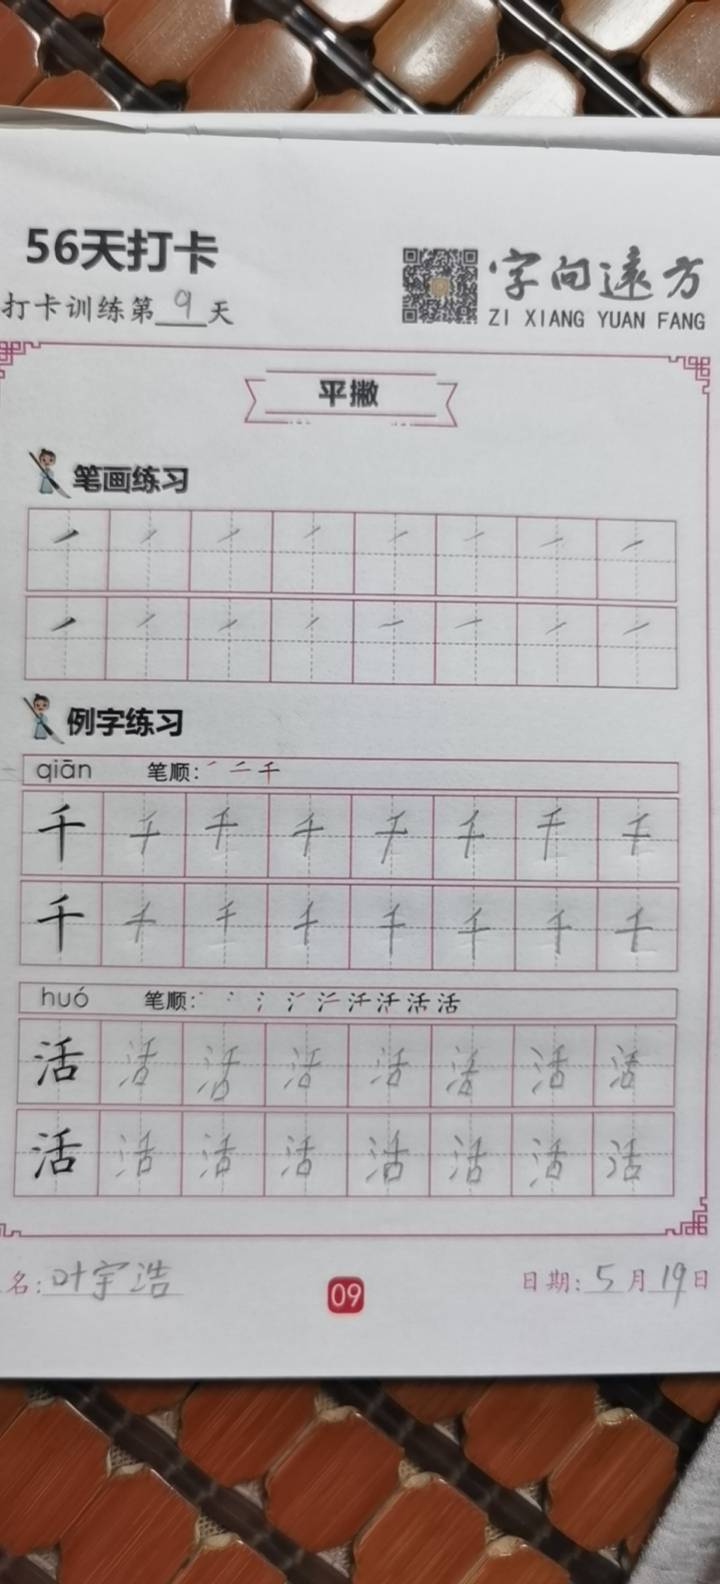 56天打卡
打卡训练第9天
字向遠方
ZI XIANG YUAN FANG
平撇
笔画练习
例字练习
qiān 笔顺：
千 千 千 千 千 千 千 千
千 千 千 千 千 千 千 千
huó 笔顺：
活 活 活 活 活 活 活 活
活 活 活 活 活 活 活 活
名：叶宇浩
09
日期：5月19日